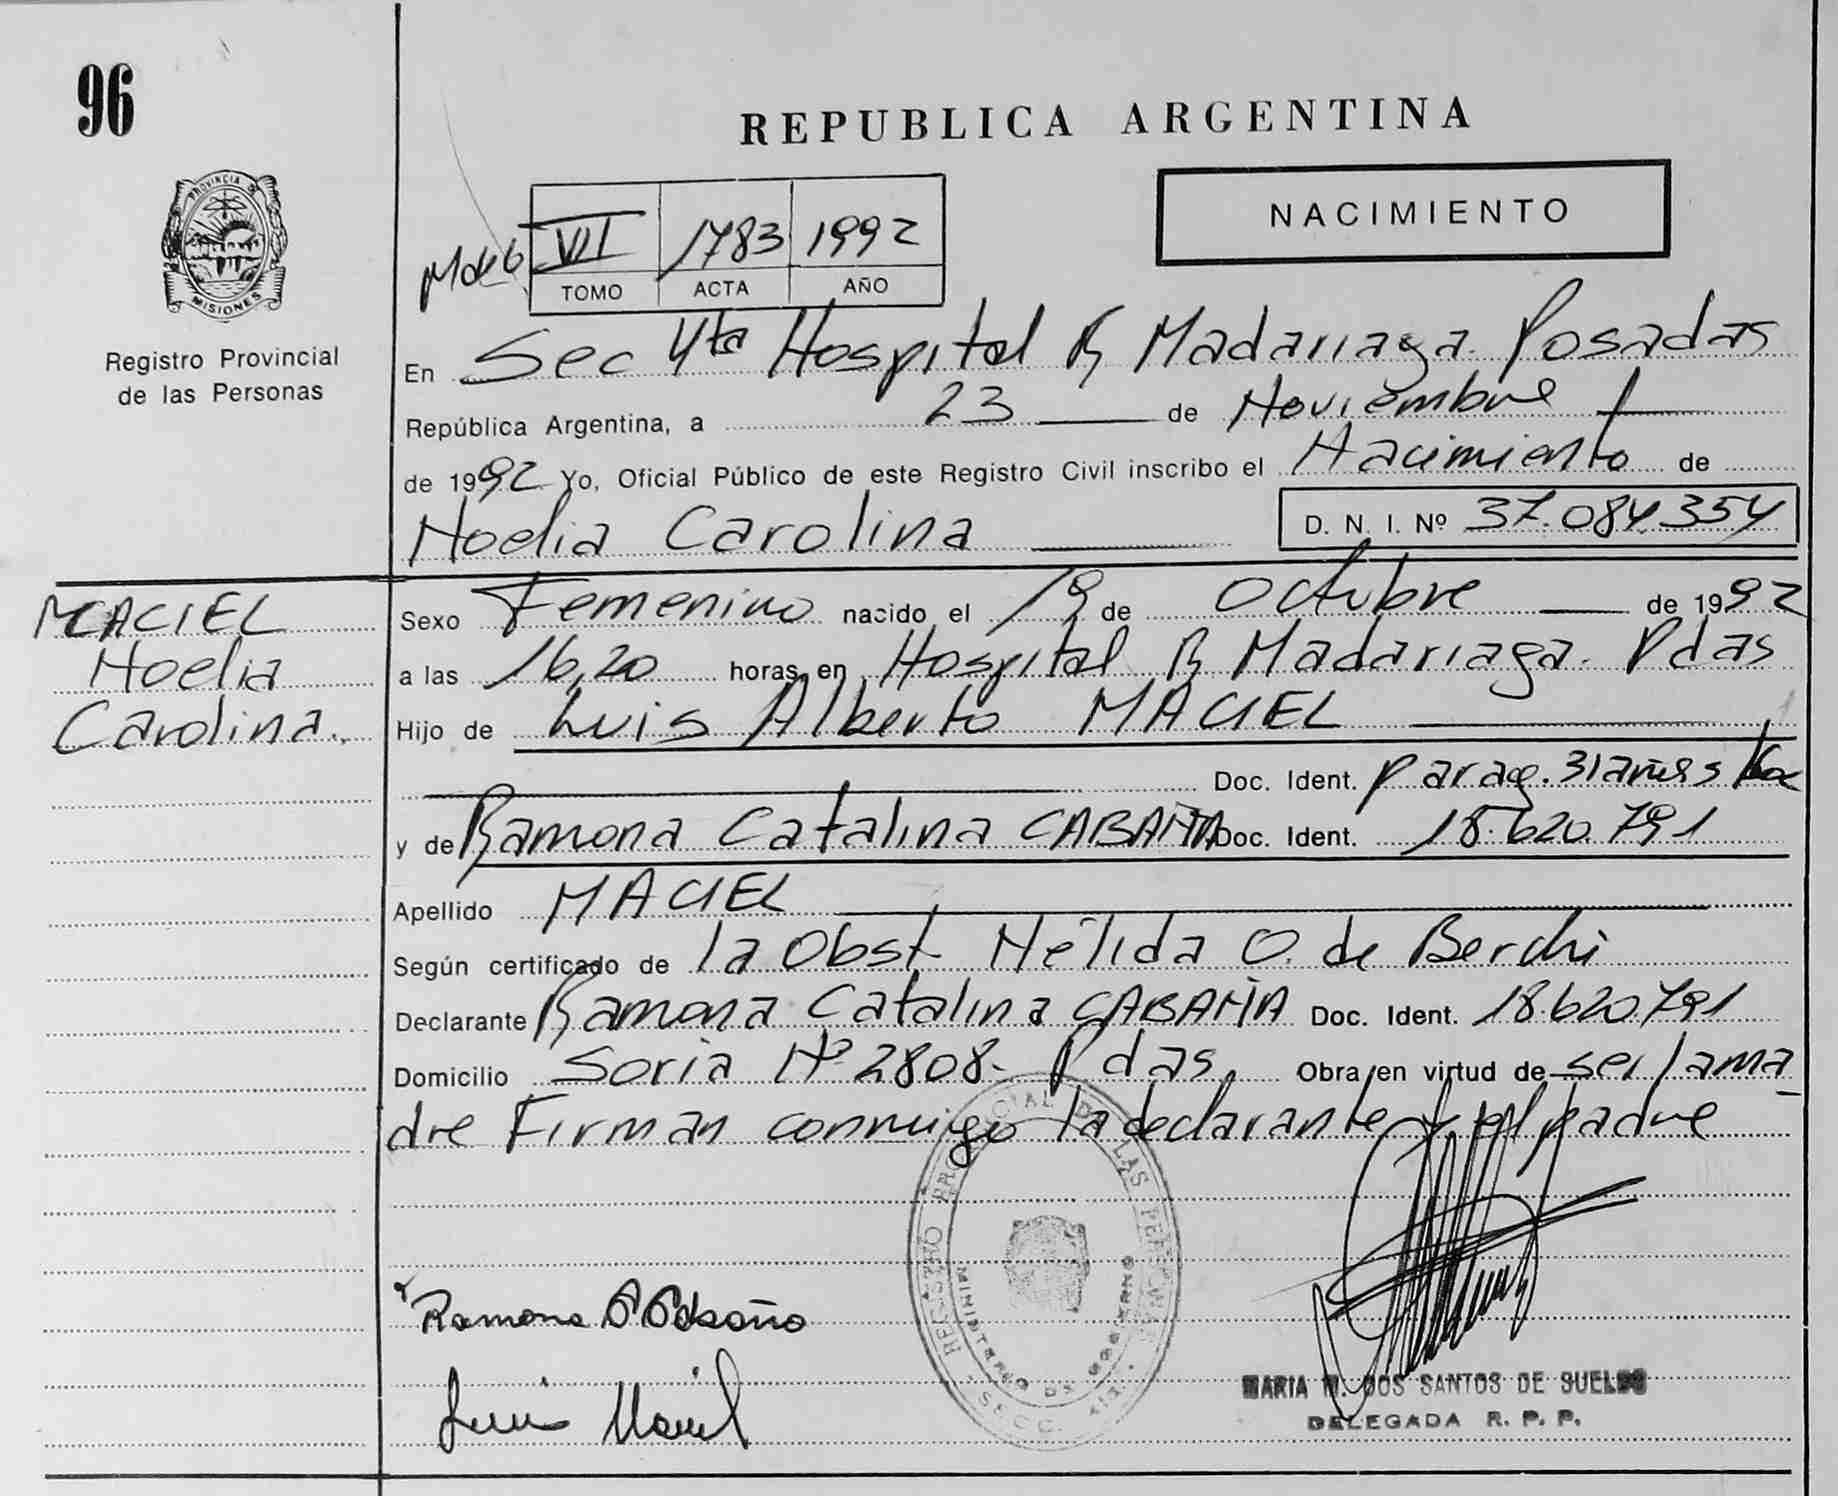 96
REPUBLICA ARGENTINA
NACIMIENTO
VII 1783 1992
TOMO ACTA AÑO
PROVINCIA DE
MISIONES
Registro Provincial
de las Personas
En Sec 4ta Hospital R Madariaga. Posadas
República Argentina, a 23 de Noviembre
de 1992 Yo, Oficial Público de este Registro Civil inscribo el Nacimiento de
Noelia Carolina D. N. I. Nº 37.084354
MACIEL
Noelia
Carolina.
Sexo Femenino nacido el 19 de Octubre de 1992
a las 16,20 horas en Hospital R Madariaga. Pdas
Hijo de Luis Alberto MACIEL
Doc. Ident. Parag. 31 años
y de Ramona Catalina CABAÑA Doc. Ident. 18.620.791
Apellido MACIEL
Según certificado de la Obst. Nélida O. de Berchi
Declarante Ramona Catalina CABAÑA Doc. Ident. 18.620.791
Domicilio Soria Nº 2808- Pdas. Obra en virtud de ser la ma
dre Firman conmigo la declarante y el padre
REGISTRO PROVINCIAL DE LAS PERSONAS
MINISTERIO DE GOBIERNO
SECC. 4ta.
Ramona
Luis Maciel
MARIA M. DOS SANTOS DE SUELDO
DELEGADA R. P. P.